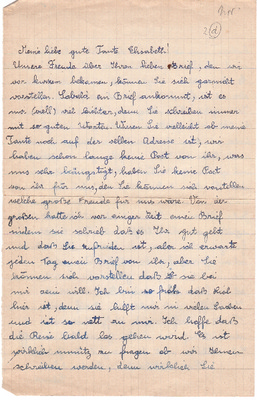 Meine liebe gute Tante Elisabeth!
Unsere Freude über Ihren lieben Brief, den wir
vor kurzem bekamen, können Sie sich garnicht
vorstellen. Sobald ein Brief ankommt, ist es
mir viel leichter, denn Sie schreiben immer
mit so guten Worten. Wissen Sie vielleicht ob meine
Tante noch auf der selben Adresse ist, wir
haben schon lange keine Post von ihr, was
uns sehr beängstigt, haben Sie keine Post
von ihr für uns, denn Sie können sich vorstellen
welche große Freude für uns wäre. Von der
großen hatte ich vor einiger Zeit einen Brief
indem sie schrieb daß es Ihr gut geht
und daß Sie zufrieden ist, aber ich erwarte
jeden Tag einen Brief von ihr, aber Sie
können sich vorstellen daß sie bei
mir sein will. Ich bin so froh daß
hier ist, denn sie hilft mir in vielen Sachen
und ist so nett zu mir. Ich hoffe daß
die Reise bald los gehen wird. Es ist
wirklich unnütz zu fragen ob wir Ihnen
schreiben werden, denn wirklich Sie